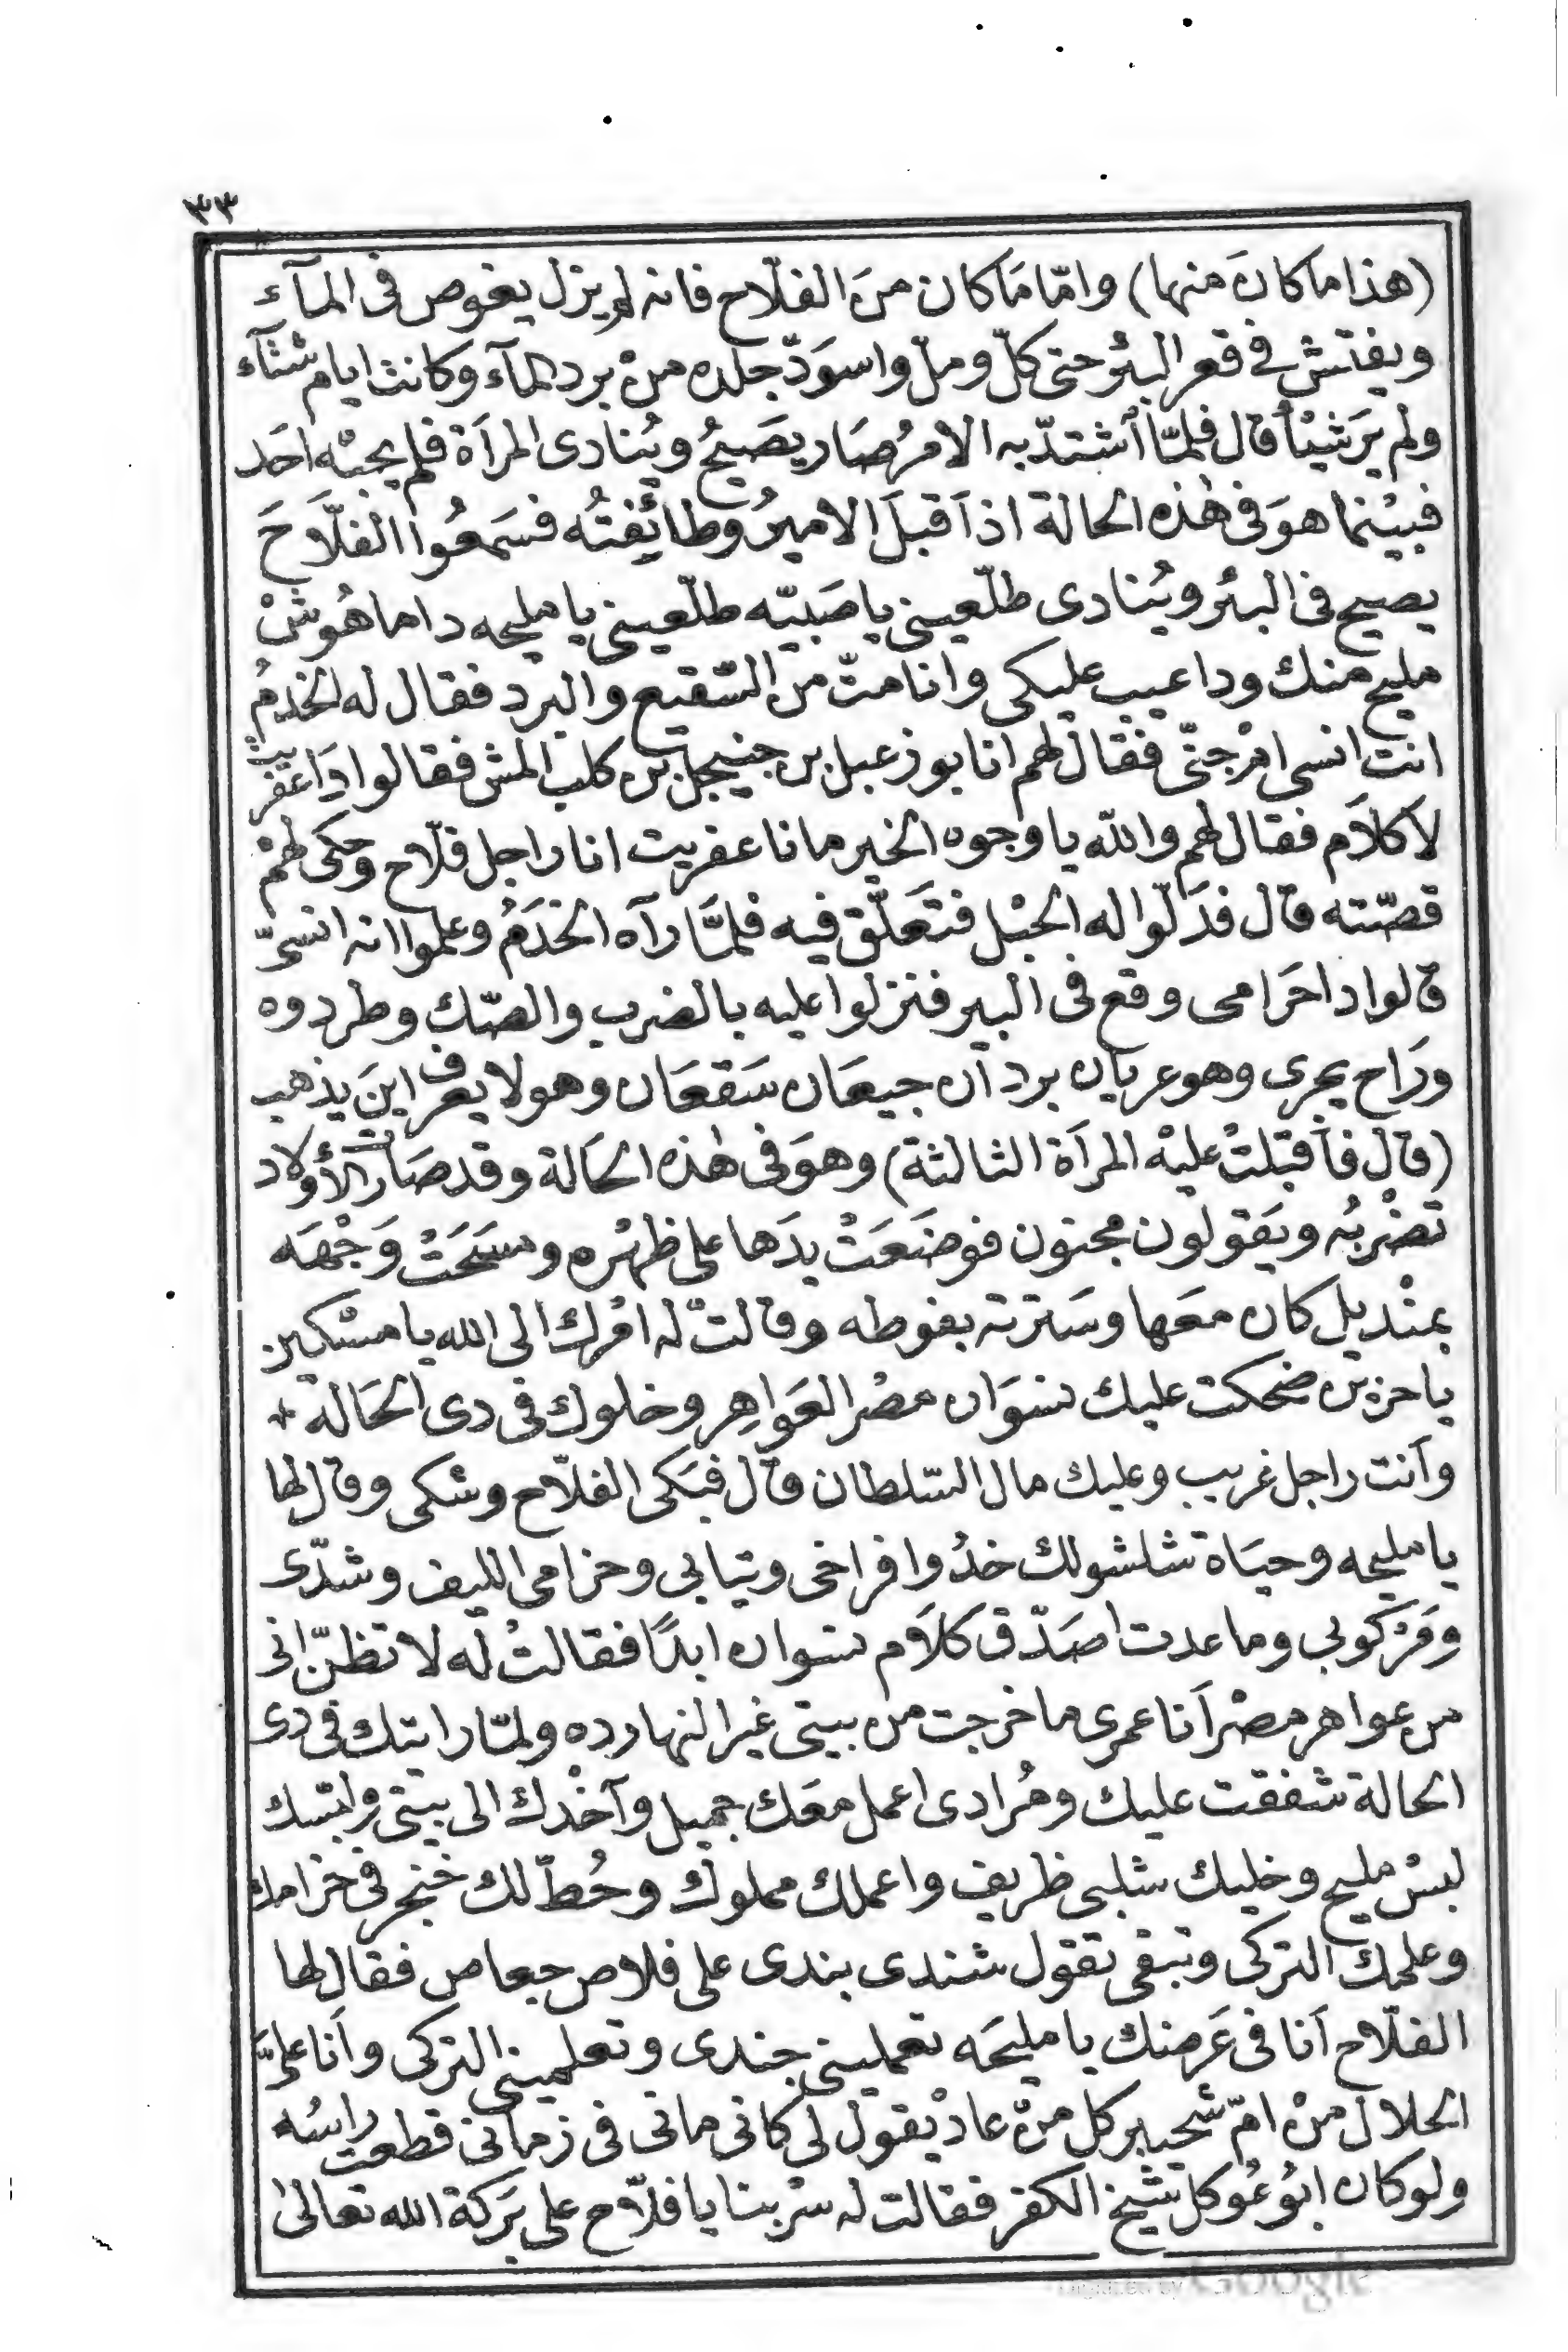 ٣٣
(هذا ما كان منها) وامّا مَا كان منَ الفلّاح فانه لم يزل يغوص فى المآء
ويفتش فى قعر البئر حتى كلّ وملّ واسوَدّ جلده منْ برد المآء وكانت ايام شتآء
ولم يَرَ شيْأً قال فلمّا أشتدّ به الامرُ صَار يصَيحُ ويُنادى المرآة فلم يجبْه احَد
فبيْنما هوَ فى هٰذه الحالة اذ اَقبلَ الاميرُ وطائِفتُه فسَمعُوا الفلّاَحَ
يصيح فى البئر ويُنادى طلّعينى يا صَبيّه طلّعينى يا مليحه دا ما هُوشْ
مليح منك ودا عيب عليكى وانا متّ من السّقيع والبرد فقال له الخدمُ
انت انسى امْ جنّى فقال لهم انا ابو زعبل بن جنيجل بن كلب المش فقالوا دَا عفريت
لا كلاَم فقال لهم والله يا وجوه الخير مانا عفريت انا راجل فلّاح وحكى لهمْ
قصّته قال فدَلّوا له الحبْل فتَعَلّق فيه فلمَّا رآه الخدَمُ وعلموا انه انسىّ
قالوا دا حَرامى وقع فى البير فنزلوا عليه بالضرب والصّك وطردوه
ورَاح يجرى وهو عريان بردان جيعَان سَقعَان وهو لا يعرف اينَ يذهب
(قال فأقبَلتْ عليْه المرآة الثالثة) وهوَ فى هٰذه الحَالة وقد صَارت الأولاد
تضْربُه ويَقولون مجنون فوضَعَتْ يدَها على ظهْره ومسَحَتْ وَجْهَه
بمنْديل كان معَها وسَترته بفوطه وقالتْ له امْرك الى الله يا مسْكين
يا حزين ضحكت عليك نسوَان مصْر العَواهِر وخلوك فى دى الحَالة *
وآنت راجل غريب وعليك مال السّلطان قال فبَكى الفلّاح وشكى وقال لها
يا مليحه وحيَاة شلشولك خدُوا فراخى وتيابى وحزامى الليف وشدّى
ومَرْكوبى وما عدت اصَدّق كلاَم نسوان ابدًا فقالتْ له لا تظنّ انى
من عواهر مصْر اَنا عمرى ما خرجت من بيتى غير النهارده ولمّا رايتك فى دى
الحالة شفقت عليك ومُرادى اعمل معَك جميل وآخْدك الى بيتى والبّسك
لبسْ مليح وخليك شلبى ظريف واعملك مملوك وحُطّ لك خنجر فى حزامك
وعلمك التركى وتبقى تقول شندى بندى على فلاص جعاص فقال لها
الفلّاح اَنا فى عَرضك يا مليحَه تعملينى جندى وتعلمينى التركى واَنا علىَّ
الحلال منْ امّ شحيبر كل منْ عادْ يقول لى كانى مانى فى زمانى قطعت راسُه
ولو كان ابُو عُوكل شيخ الكفر فقالت له سرْ بنا يا فلّاح على بَركة الله تعالىٰ
Digitized by Google